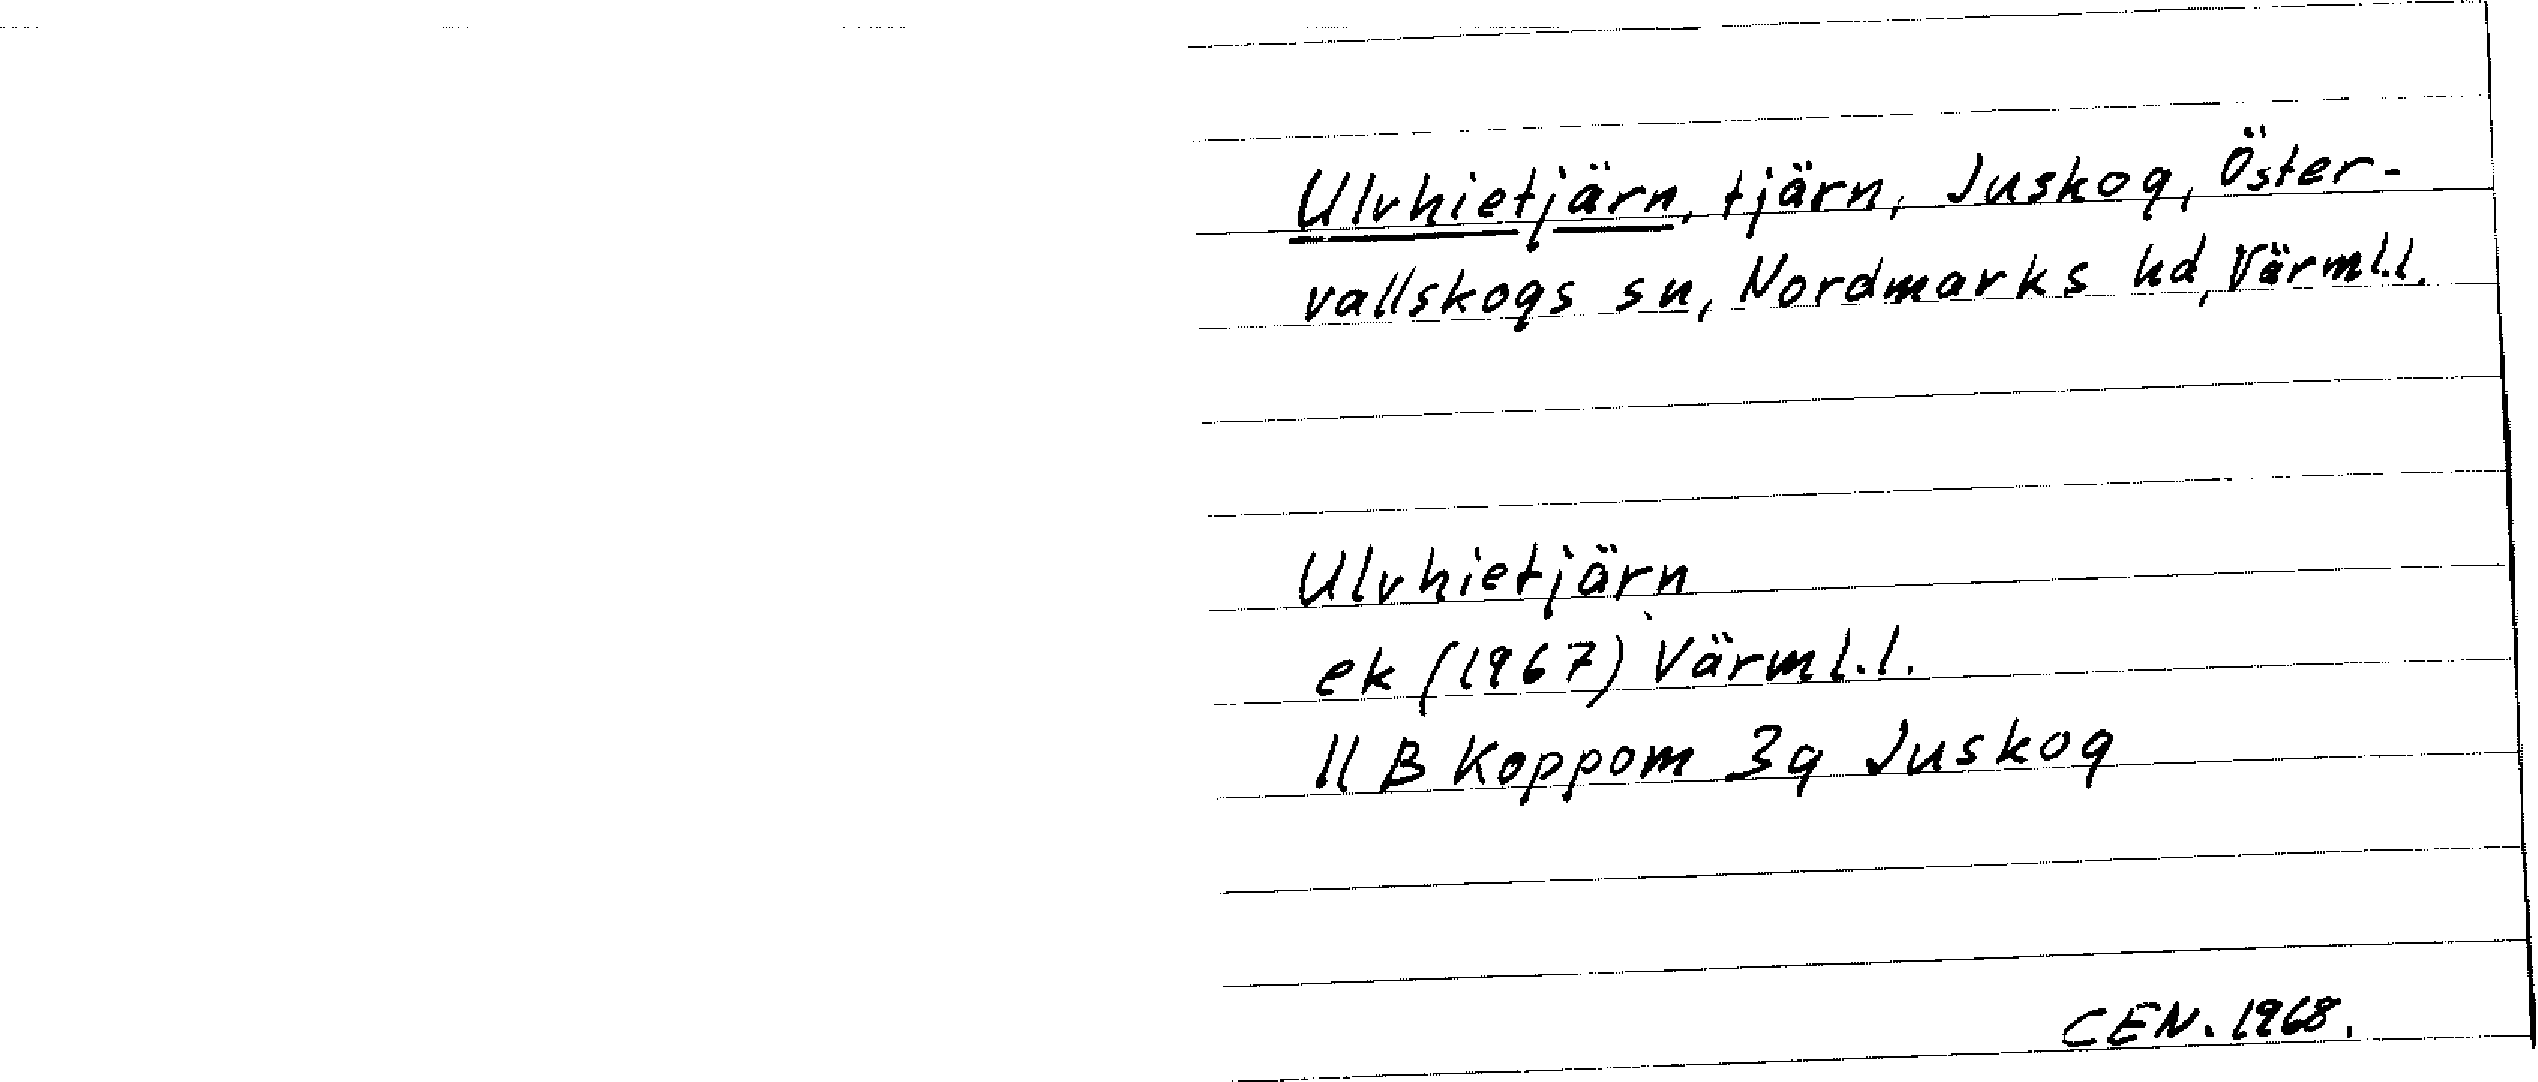 Ulvhietjärn, tjärn, Juskog, Öster-
vallskogs sn, Nordmarks hd, Värml.l.
Ulvhietjärn
ek (1967) Värml.l.
11 B Koppom 3g Juskog
CEN. 1968.